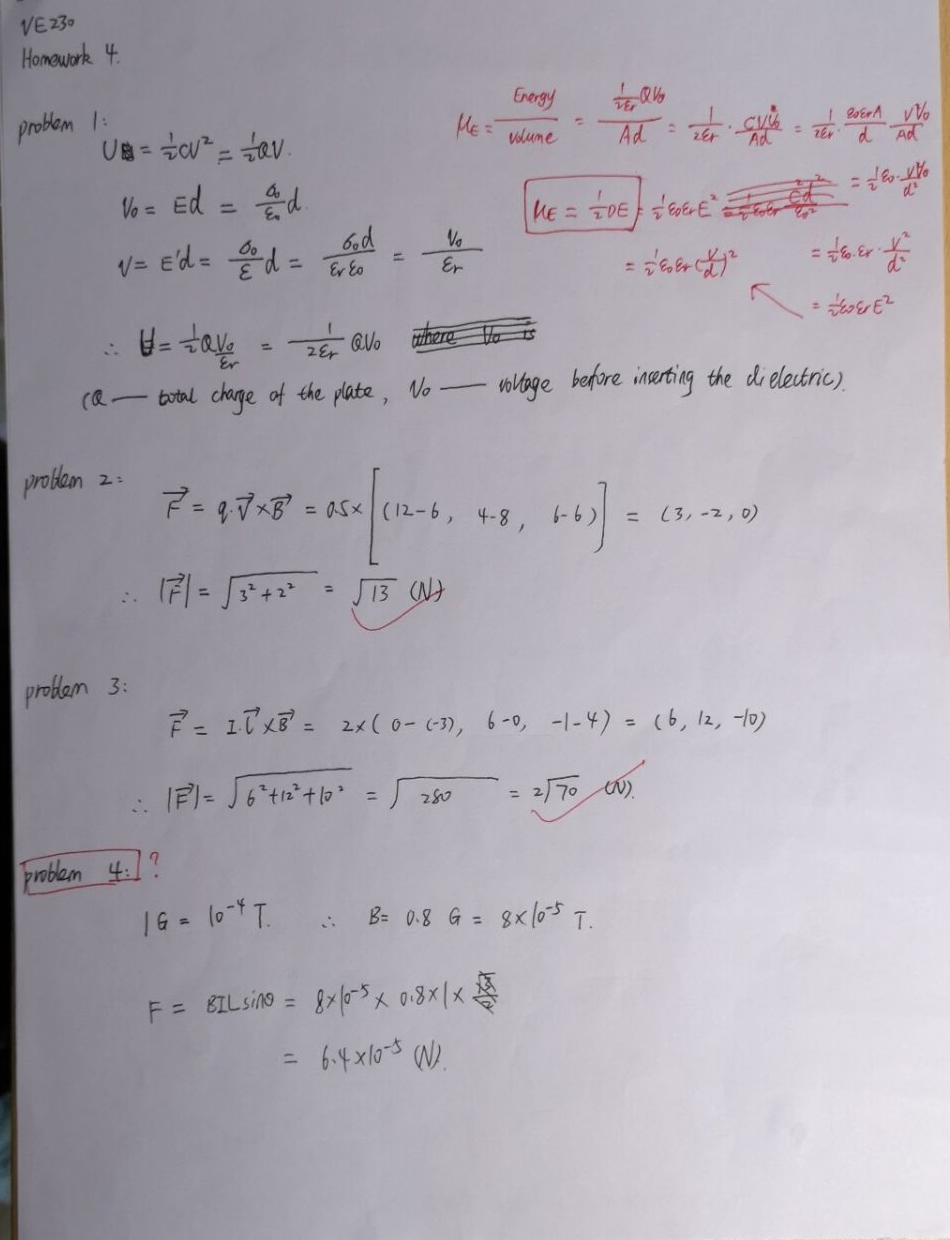 VE230
Homework 4.
problem 1:
U = ½CV² = ½QV.
V₀ = Ed = σ₀/ε₀ d.
V = E'd = σ₀/ε d = σ₀d/(εrε₀) = V₀/εr
∴ U = ½Q V₀/εr = 1/(2εr) QV₀ where V₀ is
(Q — total charge of the plate, V₀ — voltage before inserting the dielectric).
μE = Energy/volume = (1/(2εr) QV₀)/(Ad) = 1/(2εr) · CVV₀/(Ad) = 1/(2εr) · ε₀εrA/d · VV₀/(Ad)
= ½ε₀ · VV₀/d²
μE = ½DE = ½ε₀εrE²
= ½ε₀εr(V/d)²
= ½ε₀·εr · V²/d²
= ½ε₀εrE²
problem 2:
F⃗ = q·V⃗×B⃗ = 0.5×[(12-6, 4-8, 6-6)] = (3, -2, 0)
∴ |F⃗| = √(3²+2²) = √13 (N)
problem 3:
F⃗ = I·l⃗×B⃗ = 2×(0-(-3), 6-0, -1-4) = (6, 12, -10)
∴ |F⃗| = √(6²+12²+10²) = √280 = 2√70 (N).
problem 4: ?
1G = 10⁻⁴ T. ∴ B = 0.8 G = 8×10⁻⁵ T.
F = BILsinθ = 8×10⁻⁵ × 0.8×1×
= 6.4×10⁻⁵ (N).